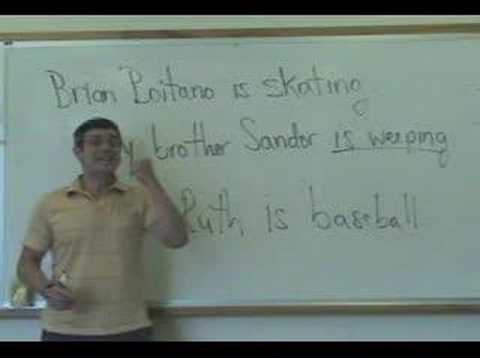 Brian Boitano is skating
y brother Sandor is weeping
Ruth is baseball